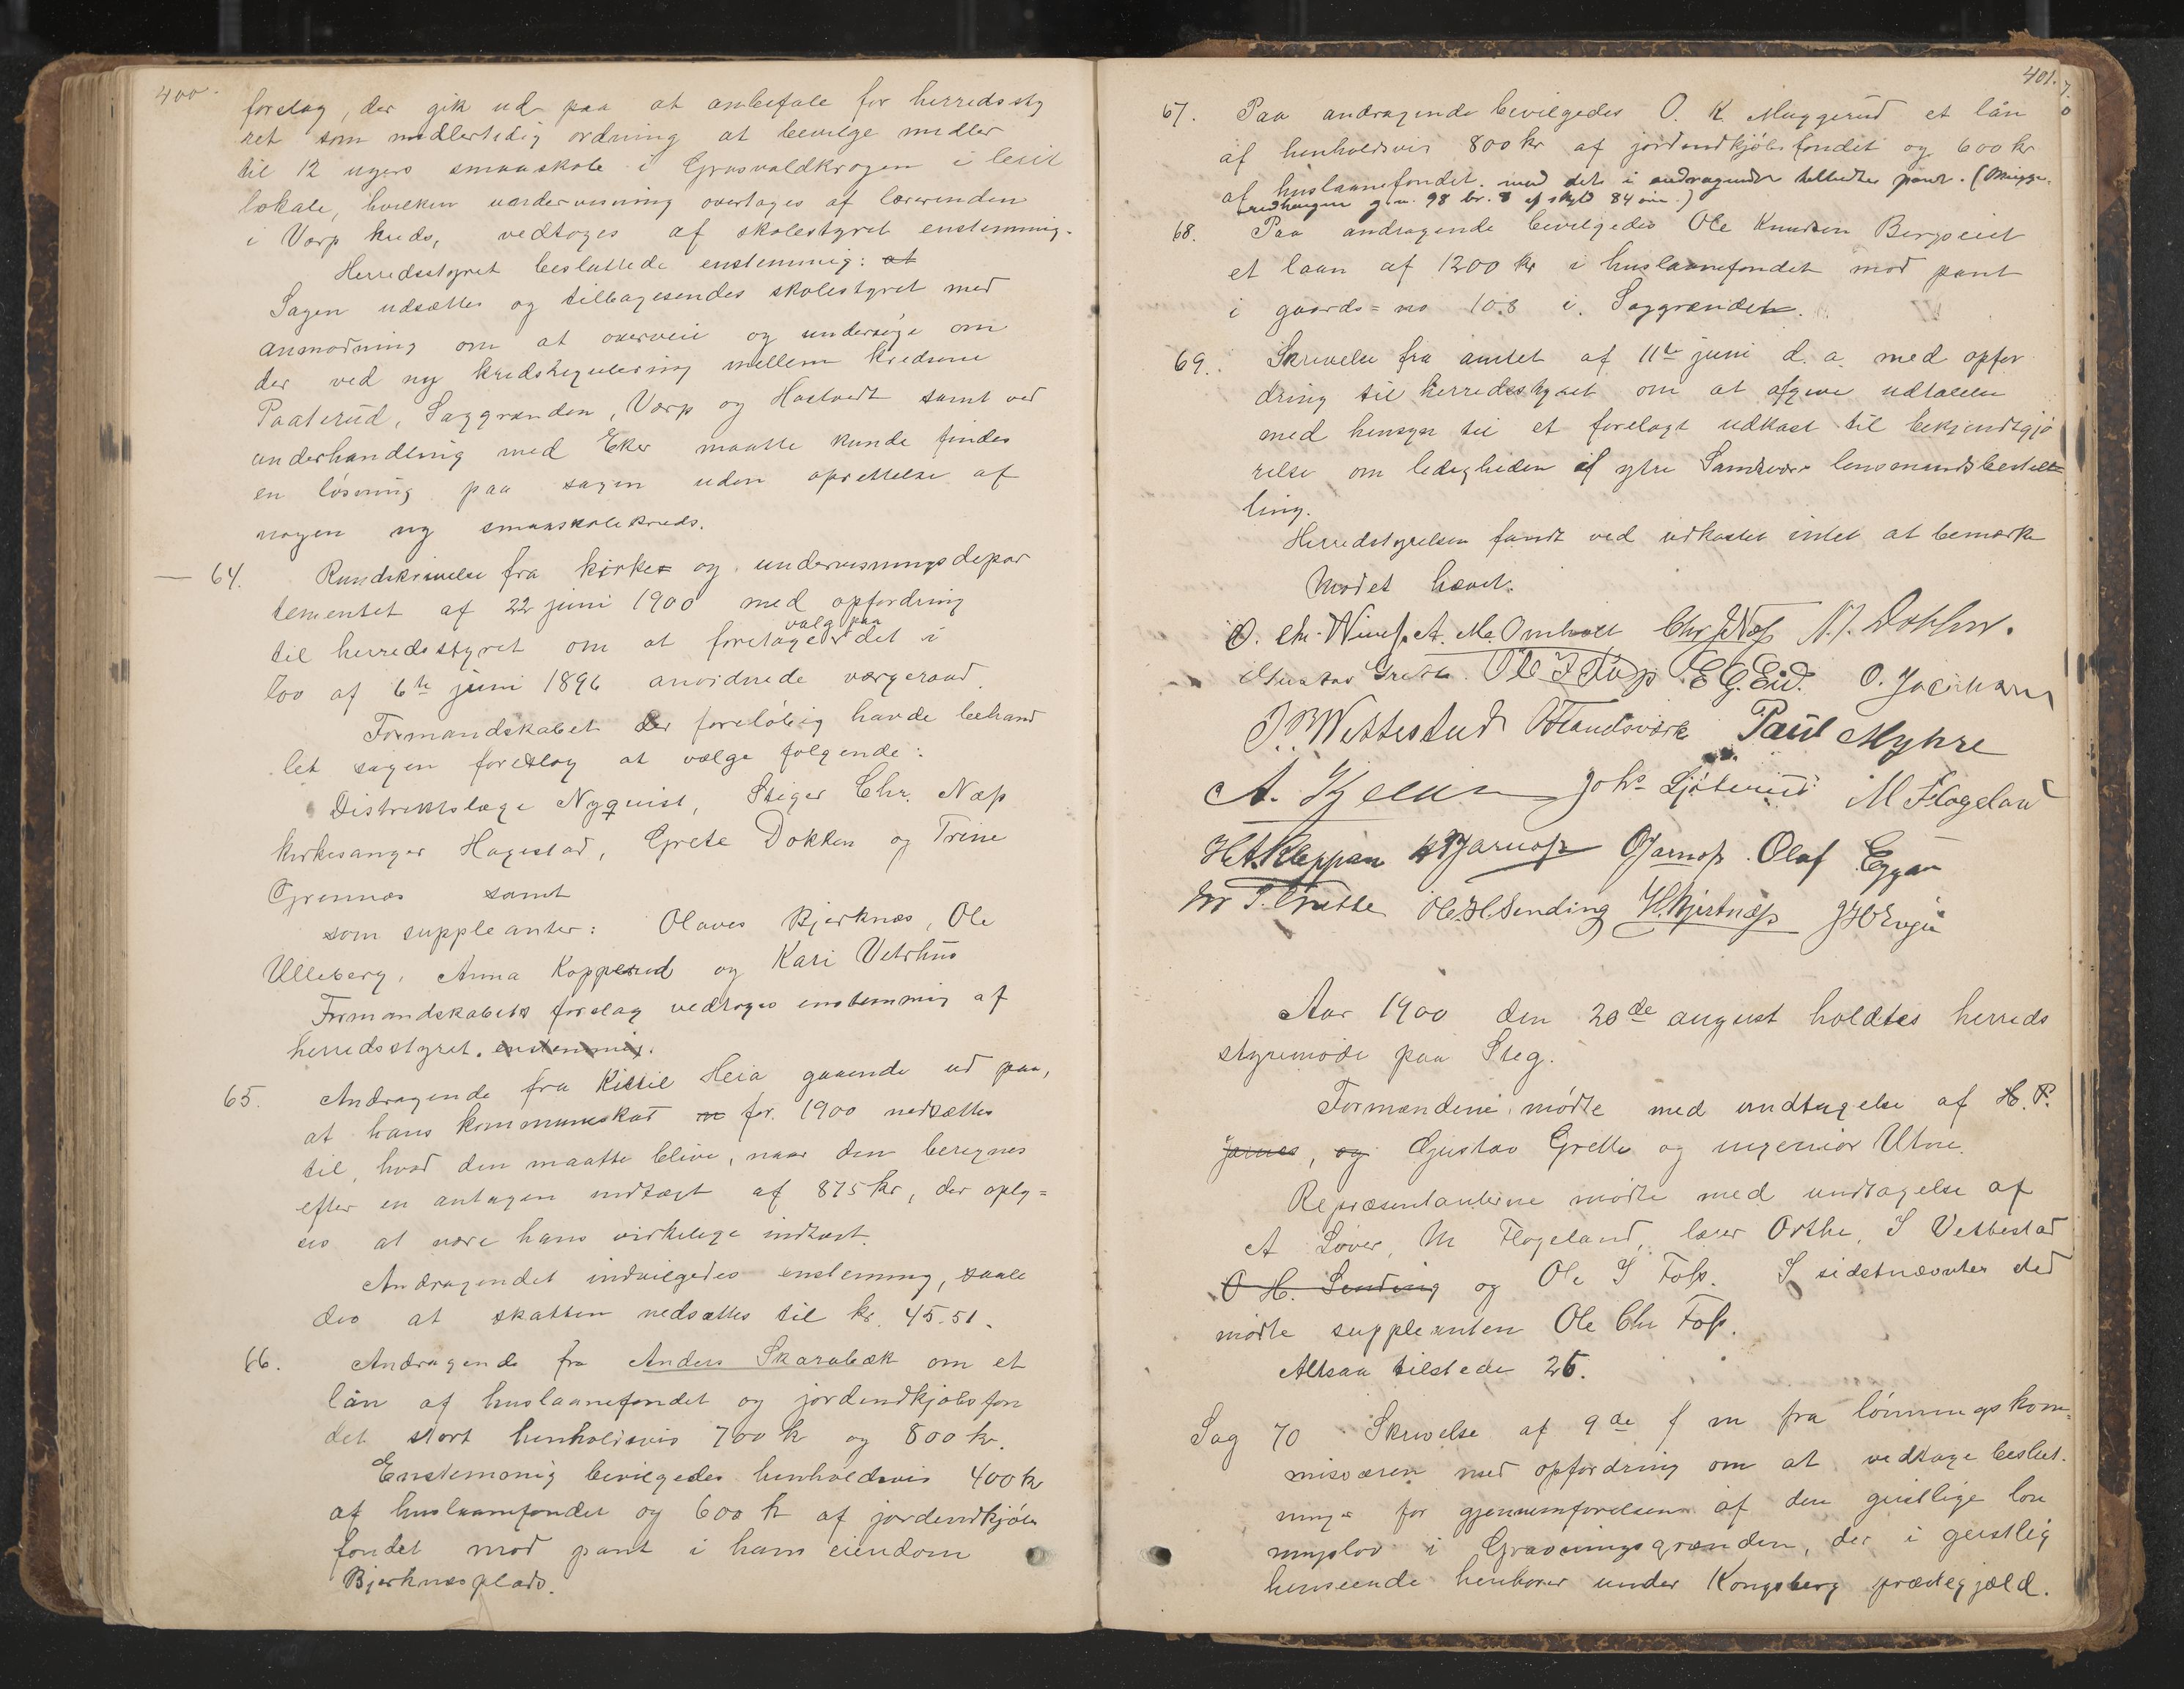 400.
forslag, der gik ud paa at anbefale for herredssty
ret som midlertidig ordning at bevilge midler
til 12 ugers smaaskole i Grosvoldkrogen i leiet
lokale, hvilken undervisning overtages af lærerinden
i Varp kreds, vedtoges af skolestyret enstemmig.
Herredsstyret besluttede enstemmig: at
Sagen udsættes og tilbagesendes skolestyret med
anmodning om at overveie og undersøge om
der ved ny kredsregulering mellem kredsene
Paaterud, Saggrænden, Varp og Hostvedt samt ved
underhandling med Eker maatte kunde findes
en løsning paa sagen uden oprettelse af
nogen ny smaaskolekreds.
64. Rundskrivelse fra kirke= og undervisningsdepar
tementet af 22 juni 1900 med opfordring
valg paa
til herredsstyret om at foretage det i
lov af 6te juni 1896 anordnede værgeraad.
Formandskabet der foreløbig havde behand
let sagen foreslog at vælge følgende:
Distriktslæge Nyquist, Stiger Chr. Næss
kirkesanger Hagestad, Grete Dokken og Trine
Grennæs samt
som suppleanter: Olaves Bjerknæs, Ole
Ulleberg, Anna Kopperud og Kari Vetrhus
Formandskabets forslag vedtoges enstemmig af
herredsstyret. enstemmig.
65. Andragende fra Kittil Heia gaaende ud paa,
at hans kommuneskat for 1900 nedsættes
til, hvad den maatte blive, naar den beregnes
efter en antagen indtægt af 875 kr, der oply=
ses at være hans virkelige indtægt.
Andragendet indvilgedes enstemmig, saale
des at skatten nedsættes til kr. 45.51.
66. Andragende fra Anders Skarabæk om et
lån af huslaanefondet og jordindkjøbsfon
det stort henholdsvis 700 kr og 800 kr.
Enstemmig bevilgedes henholdsvis 400 kr
af huslaanefondet og 600 kr af jordindkjøbs
fondet mod pant i hans eiendom
Bjerknæsplads.
401.
67. Paa andragende bevilgedes O. K. Muggerud et lån
af henholdsvis 800 kr af jordindkjøbsfondet og 600 kr
af huslaanefondet. mod det i andragendet tilbudte pant. (Mugge-
rudhaugen g.n. 98 br. 8 af skyld 84 øre.)
68. Paa andragende bevilgedes Ole Knudsen Bergseiet
et laan af 1200 kr i huslaanefondet mod pant
i gaards=no 108 i Saggrænden.
69. Skrivelse fra amtet af 11te juni d. a. med opfor
dring til herredsstyret om at afgive udtalelse
med hensyn til et forelagt udkast til bekjendtgjø
relse om ledigheden af ytre Sandsvær lensmandsbestil
ling.
Herredstyrelsen fandt ved udkastet intet at bemærke
Mødet hævet.
A. M. Omholt Chr Næss
Gustav Grette. Ole J Foss E G. Eid. O. Jacobsen
Wettestad Paul Myhre
A. Johs M Flogeland
H A Kleppen Jarnæss O Jarnæss. Olaf Eggar
Ole H. Sending H. Hjertnæss
Aar 1900 den 20de august holdtes herreds
styremøde paa Steg.
Formændene mødte med undtagelse af H. P.
Jarnes, og Gustav Grette og ingeniør Utne.
Repræsentanterne mødte med undtagelse af
A Løver, M Flogeland, læer Orthe, S Vettestad
O H. Sending og Ole J Foss. I sidstnævntes sted
mødte suppleanten Ole Chr Foss.
Altsaa tilstede 26.
Sag 70 Skrivelse af 9de f m fra lønningskom=
missæren med opfordring om at vedtage beslut-
ning for gjennemførelsen af den geistlige løn
ningslov i Gravningsgrænden, der i geistlig
henseende henhører under Kongsberg præstegjæld.